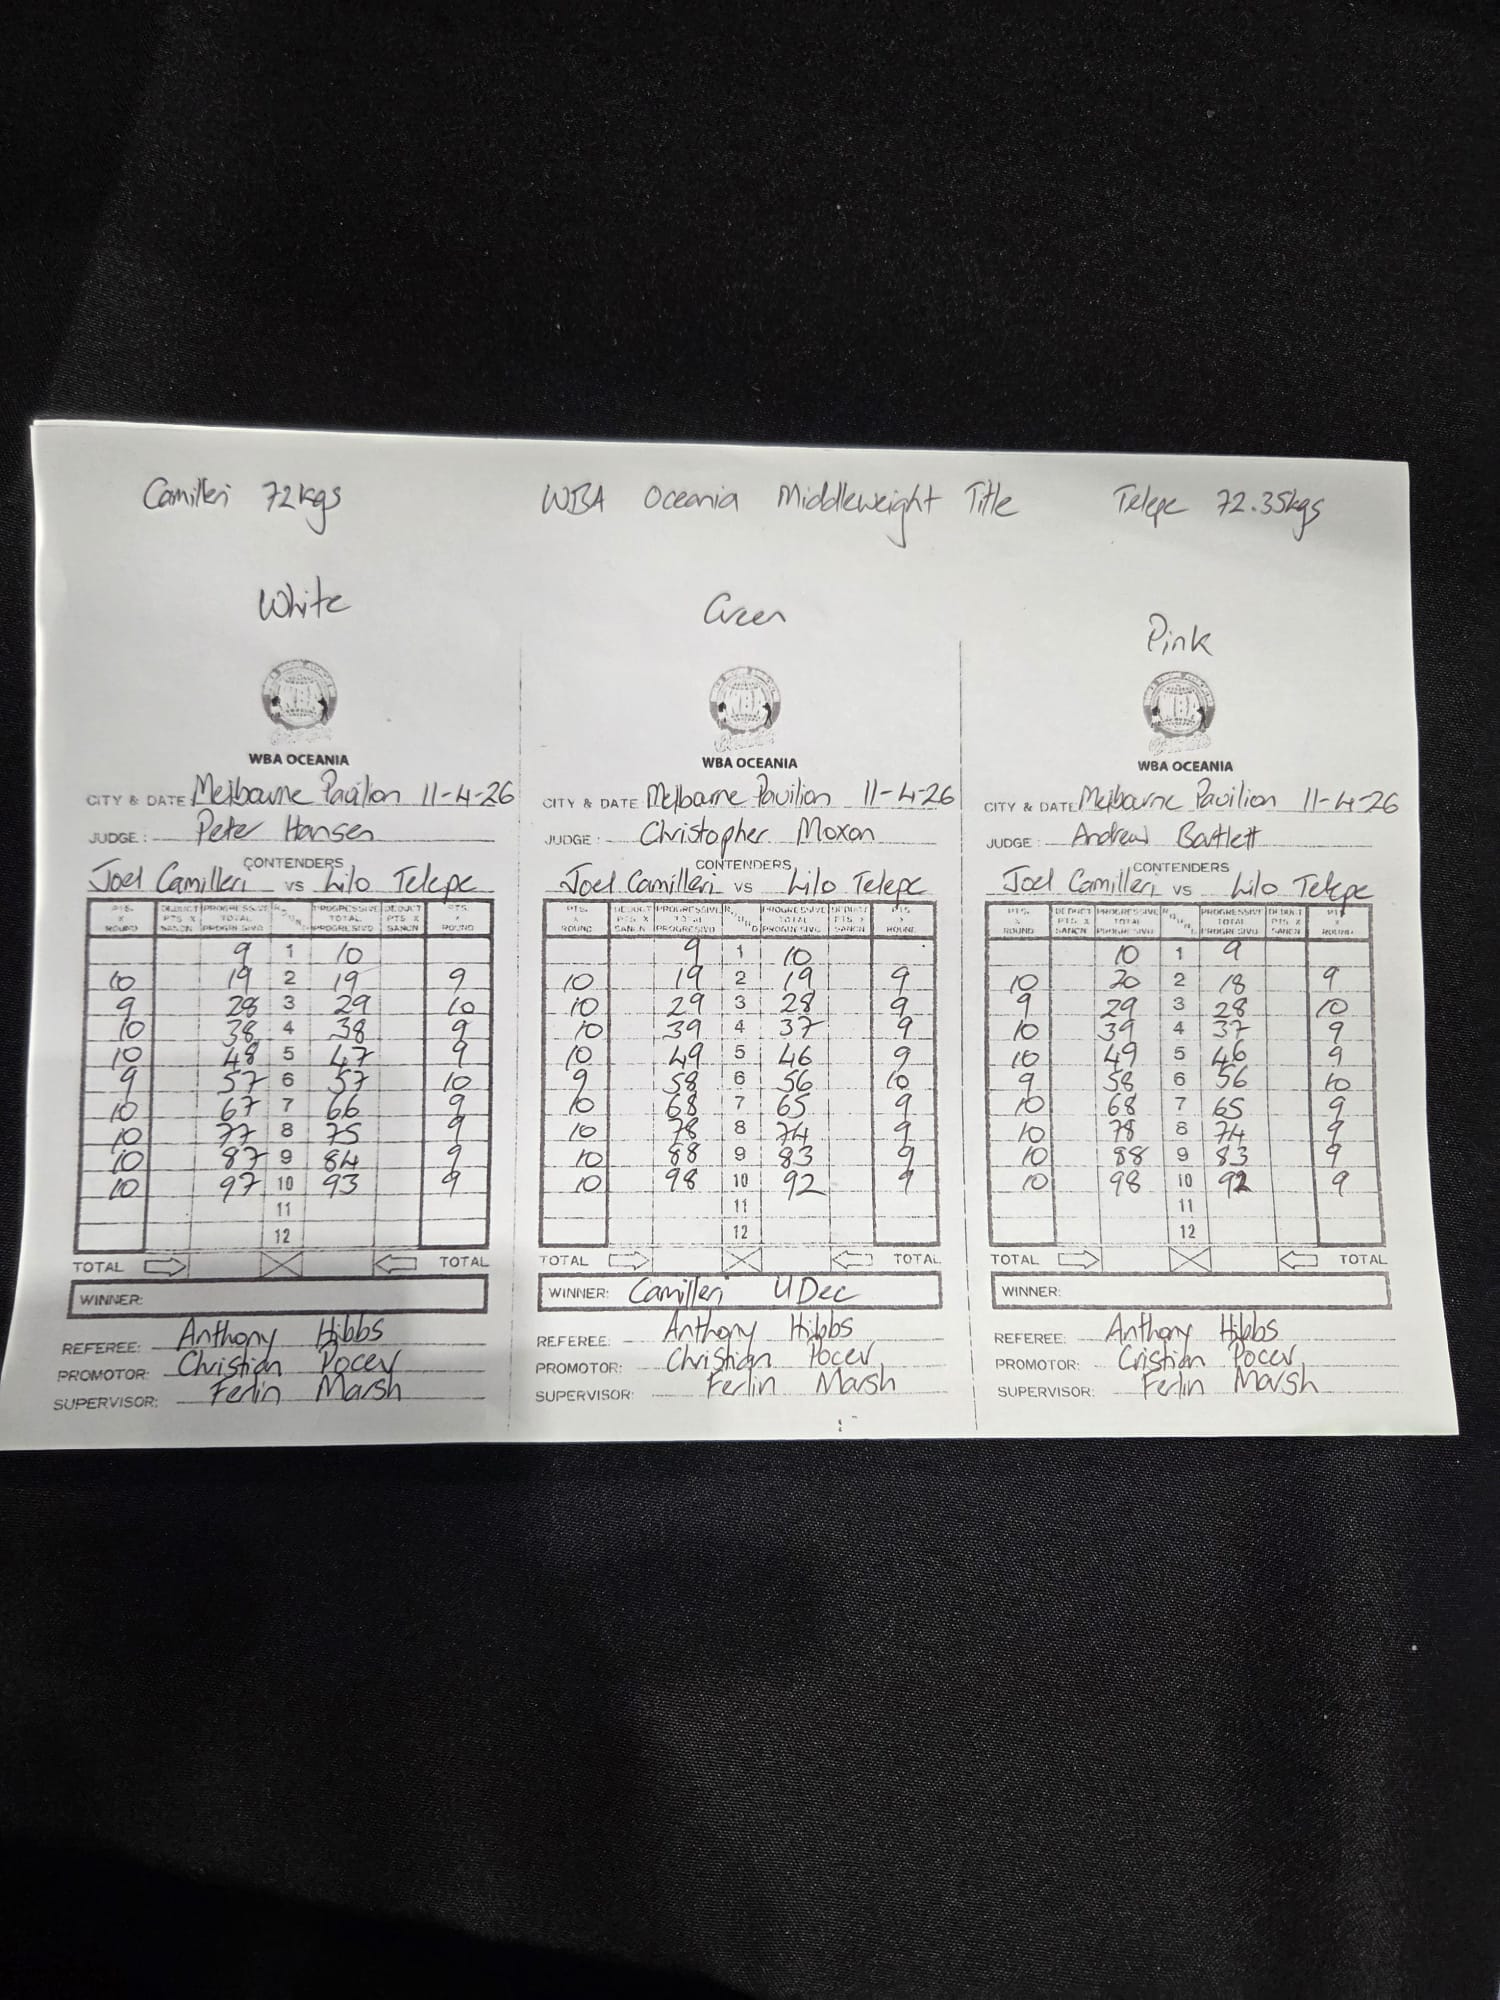 Camilleri 72kgs WBA Oceania Middleweight Title Telepe 72.35kgs
White
WBA OCEANIA
CITY & DATE Melbourne Pavilion 11-4-26
JUDGE: Peter Hansen
CONTENDERS
Joel Camilleri VS Lilo Telepe
PTS. X ROUND DEDUCT PTS X SANCN PROGRESSIVE TOTAL PROGRESIVO ROUND PROGRESSIVE TOTAL PROGRESIVO DEDUCT PTS X SANCN PTS. X ROUND
9 1 10
10 19 2 19 9
9 28 3 29 10
10 38 4 38 9
10 48 5 47 9
9 57 6 57 10
10 67 7 66 9
10 77 8 75 9
10 87 9 84 9
10 97 10 93 9
11
12
TOTAL TOTAL
WINNER:
REFEREE: Anthony Hibbs
PROMOTOR: Christian Pocev
SUPERVISOR: Ferlin Marsh
Green
WBA OCEANIA
CITY & DATE Melbourne Pavilion 11-4-26
JUDGE: Christopher Moxon
CONTENDERS
Joel Camilleri VS Lilo Telepe
PTS. X ROUND DEDUCT PTS X SANCN PROGRESSIVE TOTAL PROGRESIVO ROUND PROGRESSIVE TOTAL PROGRESIVO DEDUCT PTS X SANCN PTS. X ROUND
9 1 10
10 19 2 19 9
10 29 3 28 9
10 39 4 37 9
10 49 5 46 9
9 58 6 56 10
10 68 7 65 9
10 78 8 74 9
10 88 9 83 9
10 98 10 92 9
11
12
TOTAL TOTAL
WINNER: Camilleri U Dec
REFEREE: Anthony Hibbs
PROMOTOR: Christian Pocev
SUPERVISOR: Ferlin Marsh
Pink
WBA OCEANIA
CITY & DATE Melbourne Pavilion 11-4-26
JUDGE: Andrew Bartlett
CONTENDERS
Joel Camilleri VS Lilo Telepe
PTS. X ROUND DEDUCT PTS X SANCN PROGRESSIVE TOTAL PROGRESIVO ROUND PROGRESSIVE TOTAL PROGRESIVO DEDUCT PTS X SANCN PTS. X ROUND
10 1 9
10 20 2 18 9
9 29 3 28 10
10 39 4 37 9
10 49 5 46 9
9 58 6 56 10
10 68 7 65 9
10 78 8 74 9
10 88 9 83 9
10 98 10 92 9
11
12
TOTAL TOTAL
WINNER:
REFEREE: Anthony Hibbs
PROMOTOR: Cristian Pocev
SUPERVISOR: Ferlin Marsh